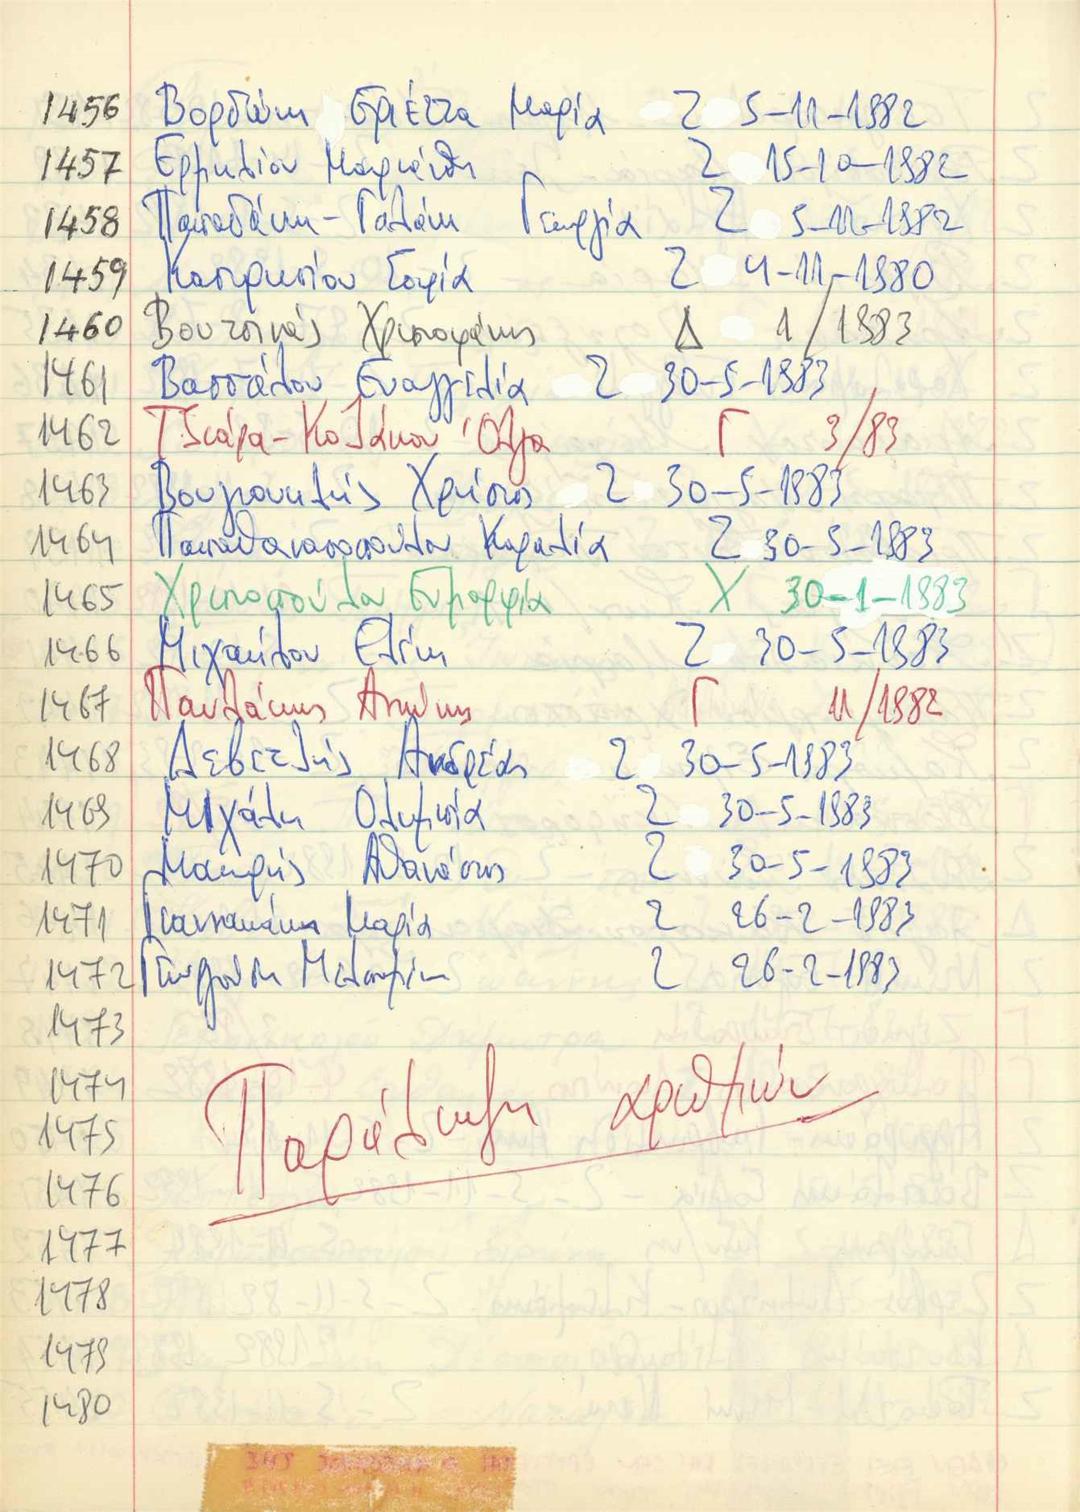 1456 Βορδώνη Εριέττα Μαρία Ζ 5-11-1982
1457 Ερμηλίου Μαριάνθη Ζ 15-10-1982
1458 Παπαδάκη-Γαλάνη Γεωργία Ζ 5-11-1982
1459 Σοφία Ζ 4-11-1980
1460 Βουτσινάς Χριστοφάκης Δ 1/1983
1461 Βασσάλου Ευαγγελία Ζ 30-5-1983
1462 Τζιάρα-Κολάκου Όλγα Γ 3/83
1463 Βουγιουκλής Χρήστος Ζ 30-5-1983
1464 Παπαθανασοπούλου Κοραλία Ζ 30-5-1983
1465 Χριστοπούλου Ευμορφία Χ 30-1-1983
1466 Μιχαήλου Ελένη Ζ 30-5-1983
1467 Παυλάκης Αντώνης Γ 11/1982
1468 Δεβετζής Ανδρέας Ζ 30-5-1983
1469 Μιχάλη Ολυμπία Ζ 30-5-1983
1470 Μακρής Αθανάσιος Ζ 30-5-1983
1471 Γιαννακάκη Μαρία Ζ 26-2-1983
1472 Γεωργούση Ζ 26-2-1983
1473
1474 Παράλειψη αριθμών
1475
1476
1477
1478
1479
1480